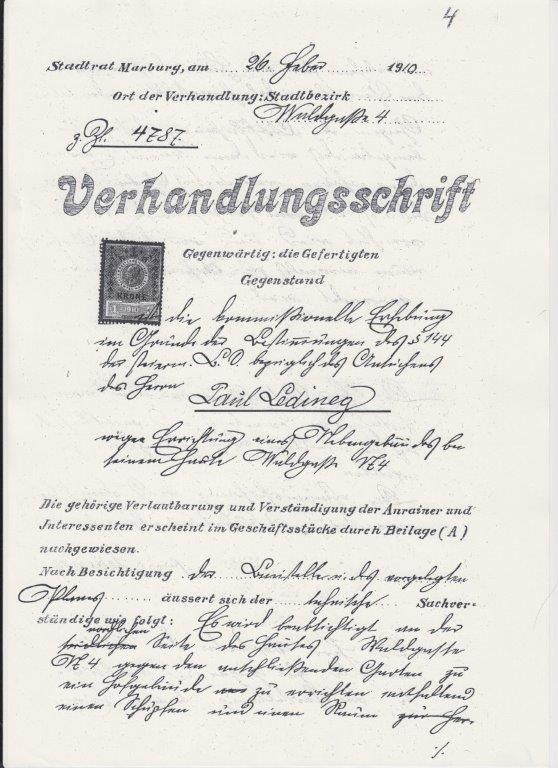 4
Stadtrat Marburg, am 26. Feber 1910
Ort der Verhandlung: Stadtbezirk
Waldgasse 4
z. Zl. 4787.
Verhandlungsschrift
Gegenwärtig: die Gefertigten
Gegenstand
KRONE
1 1910
ist die kommissionelle Erhebung
im Grunde der Bestimmungen des § 144
der steierm. B. O. bezüglich des Ansuchens
des Herrn
Paul Ledineg
wegen Errichtung eines Nebengebäudes bei
seinem Hause Waldgasse № 4
Die gehörige Verlautbarung und Verständigung der Anrainer und
Interessenten erscheint im Geschäftsstücke durch Beilage (A)
nachgewiesen.
Nach Besichtigung der Baustelle u. des vorgelegten
Planes äussert sich der technische Sachver-
ständige wie folgt: Es wird beabsichtigt an der
nördlichen
südlichen Seite des Hauses Waldgasse
№ 4 gegen den anschließenden Garten zu
ein Hofgebäude zu errichten enthaltend
einen Schupfen und einen Raum zur Her-
./.